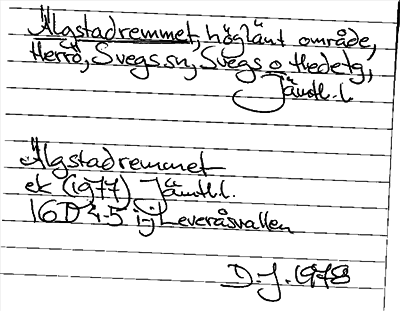 Älgstadremmet, höglänt område,
Herrö, Svegs sn, Svegs o Hedetg,
Jämtl. l.
Älgstadremmet
ek (1977) Jämtl l.
16D 4-5 i-j Leveråsvallen
D. J. 1978